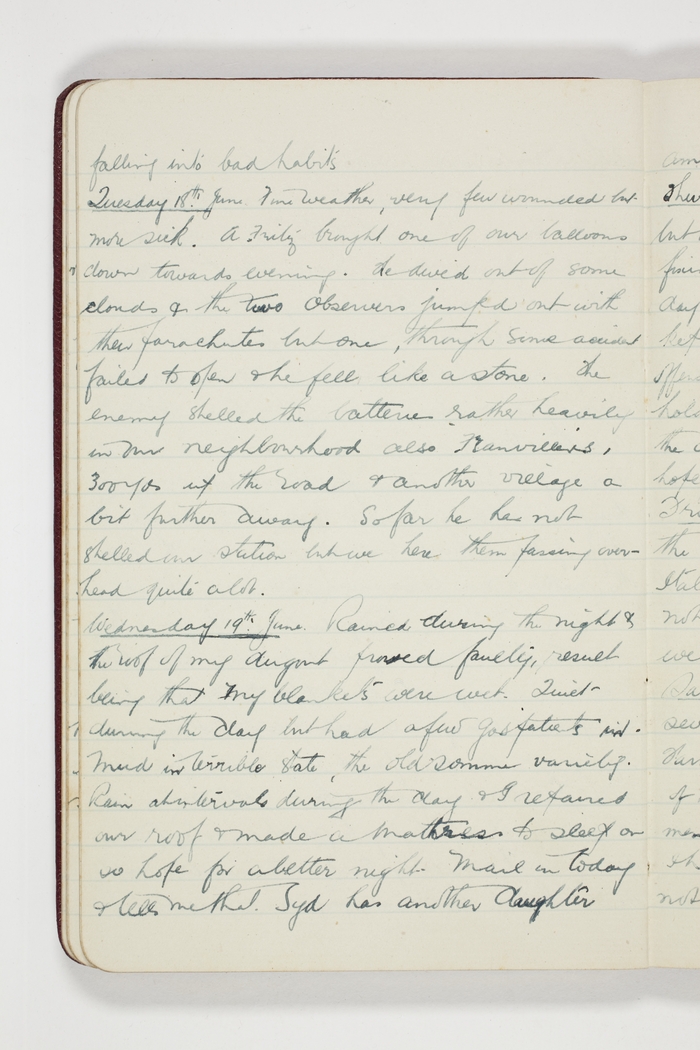 falling into bad habits.
Tuesday 18th June. Fine weather, very few wounded but
more sick. A Fritz brought one of our balloons
down towards evening. He dived out of some
clouds & the two observers jumped out with
their parachutes but one, through some accident
failed to open & he fell like a stone. The
enemy shelled the batteries rather heavily
in our neighbourhood also Franvillers,
300 yds up the road & another village a
bit further away. So far he has not
shelled our station but we hear them passing over-
head quite a lot.
Wednesday 19th June. Rained during the night &
the roof of my dugout proved faulty, result
being that my blankets were wet. Quiet
during the day but had a few gas patients in.
Mud in terrible state, the old Somme variety.
Rain at intervals during the day & I repaired
our roof & made a mattress to sleep on
so hope for a better night. Mail in today
& tells me that Syd has another daughter
am
but
day
hold
the
hope
Fri
the
Ital
not
we
sev
of
men
not